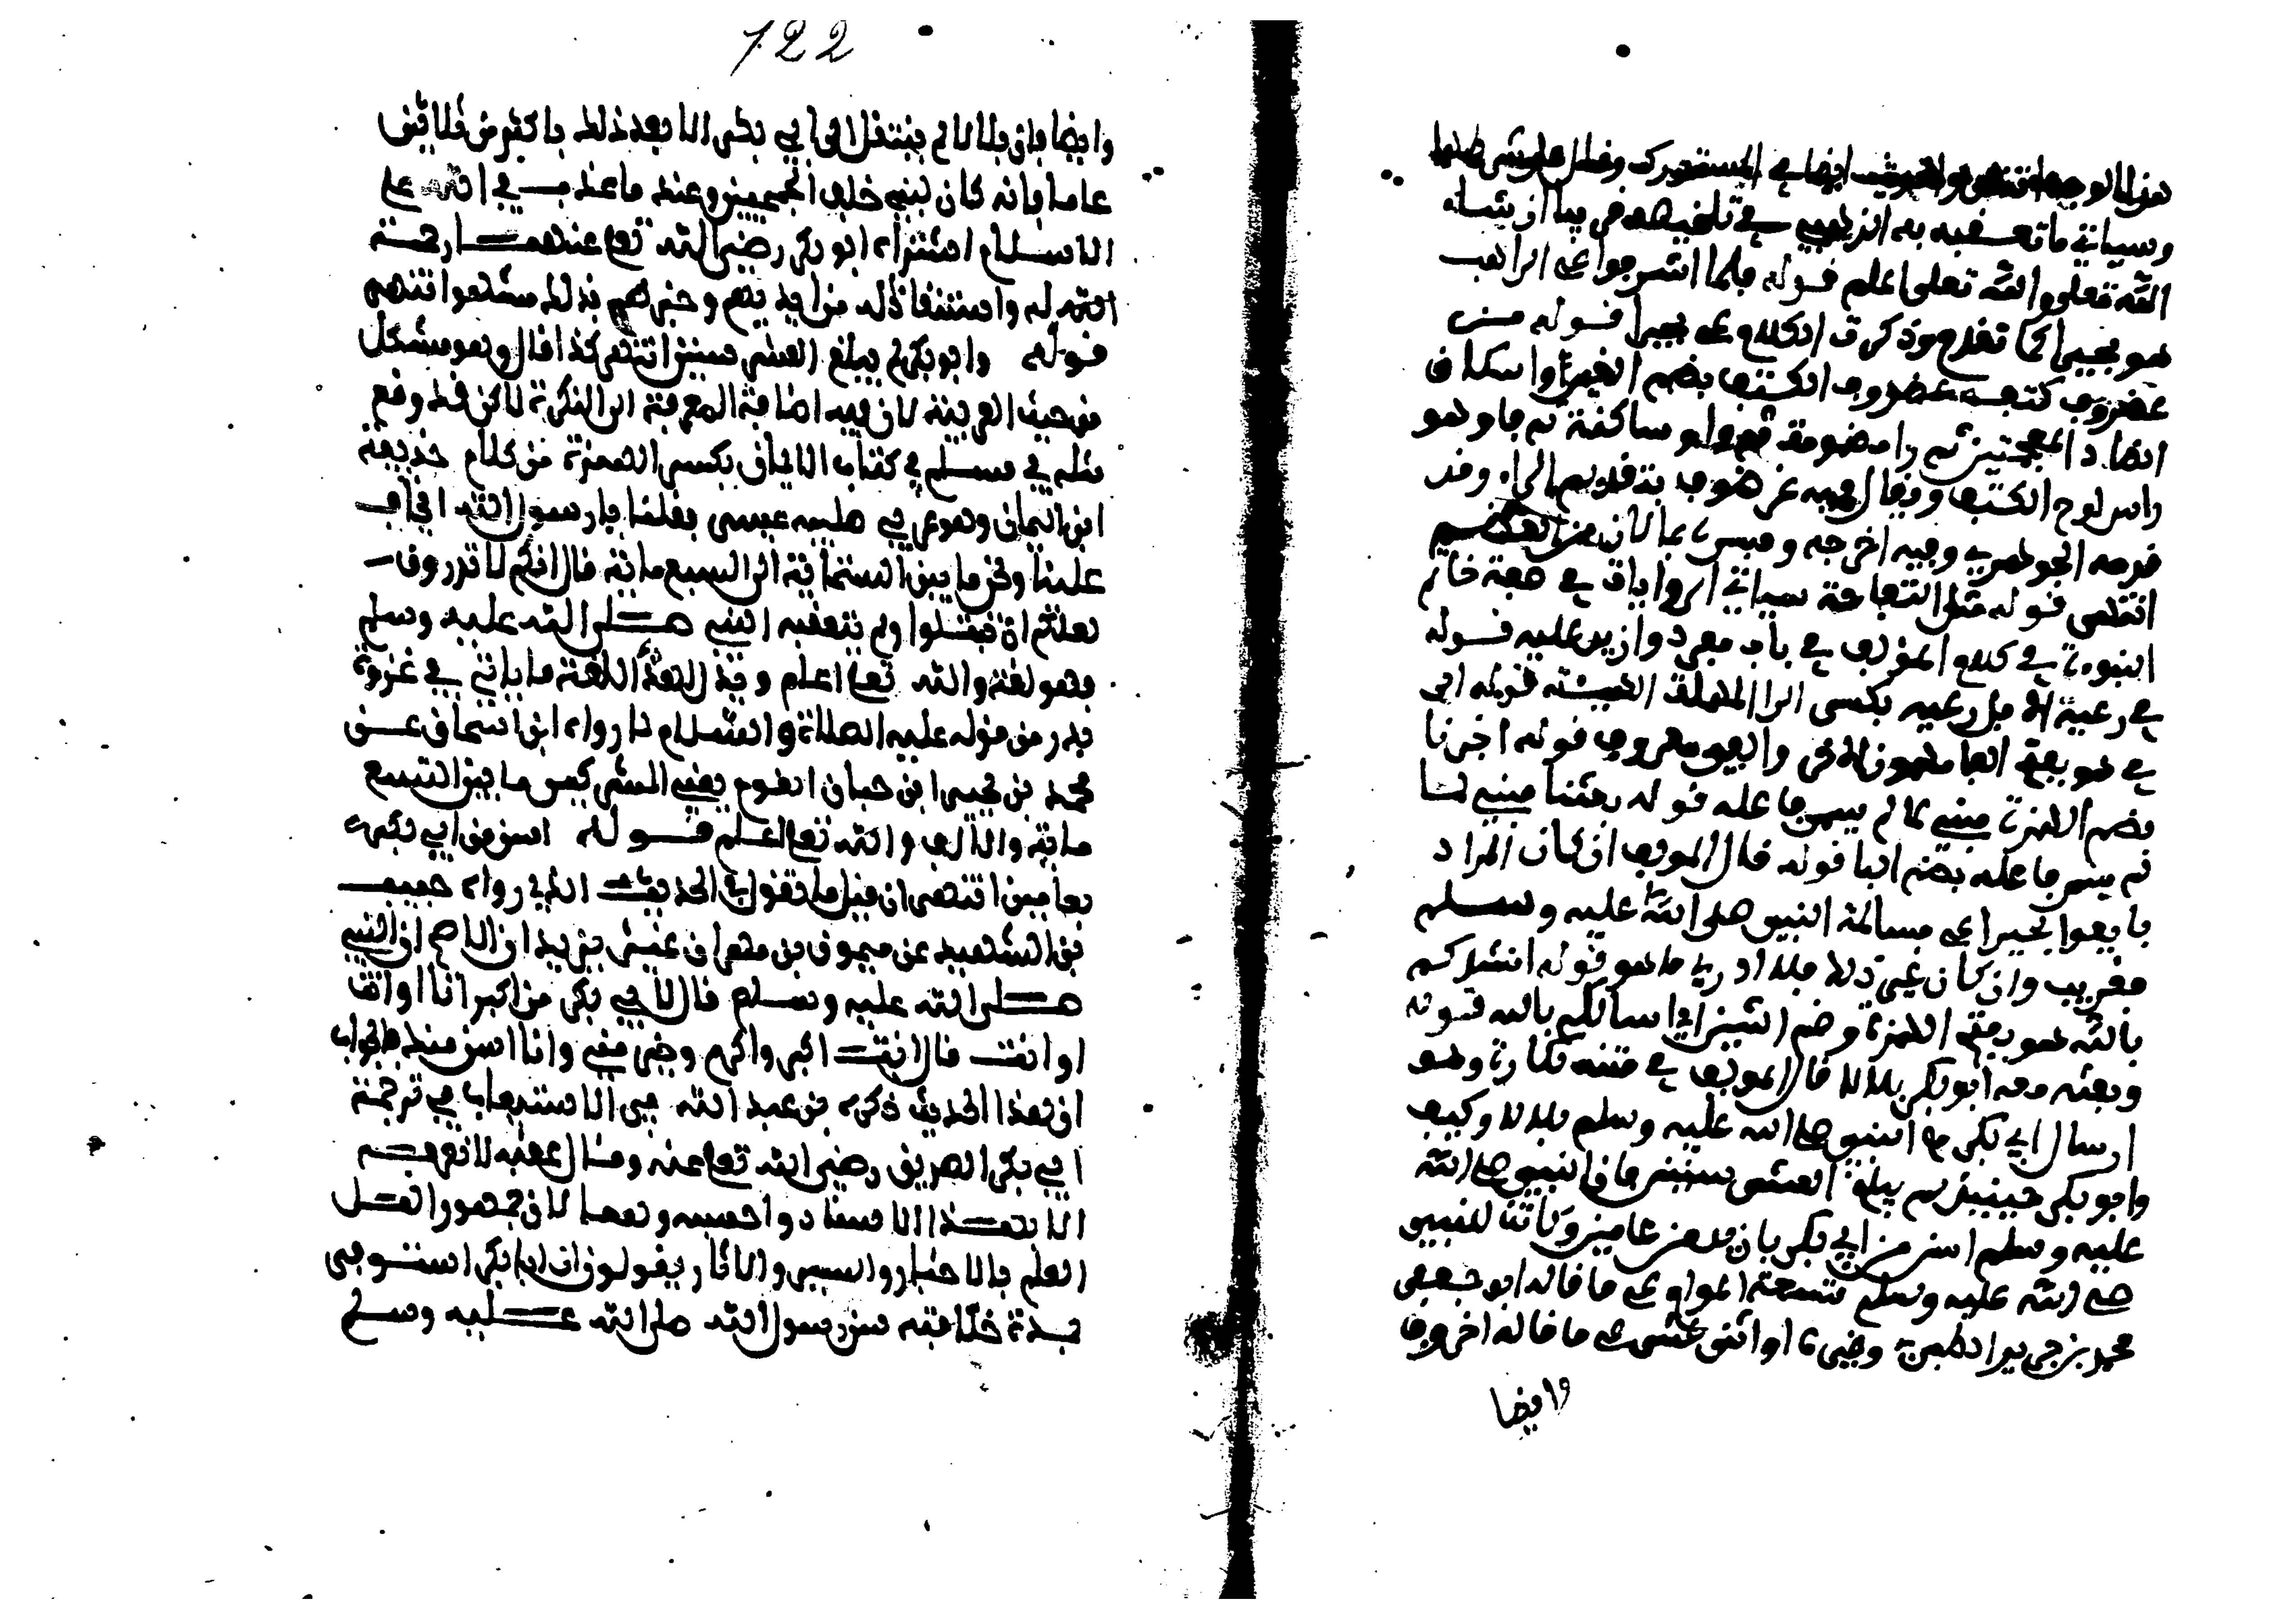 هذا الوجه انتهى والحديث ايضا في المستدرك وقال على شرطهما
وسياتي ما تعقبه به الذهبي في تلخيصه فيما ان شاء
الله تعلى والله تعلى اعلم قوله فلما اشرفوا على الراهب
هو بحيرا كما تقدم وذكرت الكلام على بحيرا قوله من
غضروف كتفه غضروف الكتف بضم الغين واسكان
الضاد المعجمتين ثم را مضمومة ثم واو ساكنة ثم فا وهو
راس لوح الكتف ويقال فيه غرضوف بتقديم الراء وقد
قدمه الجوهري وفيه اخرجه وفسره بما لان من العظم
انتهى قوله مثل التفاحة سياتي الروايات في صفة خاتم
النبوءة في كلام المؤلف في باب مفرد وازيد عليه قوله
في رعية الابل رعيه بكسر الرا المهملة الهيئة قوله الى
في هو بفتح الفا مهموز الاخر والفيء معروف قوله اخبرنا
بضم الهمزة مبني لما لم يسم فاعله قوله بعثنا مبني لما
لم يسم فاعله بضم البا قوله قال المؤلف ان كان المراد
بايعوا بحيرا على مسالمة النبي صلى الله عليه وسلم
فقريب وان كان غير ذلك فلا ادري ما هو قوله انشدكم
بالله هو بفتح الهمزة وضم الشين اي اسالكم بالله قوله
وبعث معه ابو بكر بلالا قال المؤلف في متنه نكارة وهو
ارسال ابي بكر مع النبي صلى الله عليه وسلم بلالا وكيف
وابو بكر حينيذ لم يبلغ العشر سنين فان النبي صلى الله
عليه وسلم اسن من ابي بكر بازيد من عامين وكانت للنبي
صلى الله عليه وسلم تسعة اعوام على ما قاله ابو جعفر
محمد بن جرير الطبري وغيره او اثنى عشر على ما قاله اخرون
وايضا
722
وايضا فان بلالا لم ينتقل الى ابي بكر الا بعد ذلك باكثر من ثلاثين
عاما فانه كان لبني خلف الجمحيين وعند ما عذب في الله على
الاسلام اشتراه ابو بكر رضي الله تعا عنهما رحمة
الله له واستنقاذا له من ايديهم وخبرهم بذلك مشهور انتهى
قوله وابو بكر لم يبلغ العشر سنين انتهى كذا قال وهو مشكل
من حيث العربية لان فيه اضافة المعرفة الى النكرة لاكن قد وقع
مثله في مسلم في كتاب الايمان بكسر الهمزة من كلام حذيفة
ابن اليمان وهو عربي صليبه عبسي فقلنا يا رسول الله اتخاف
علينا ونحن ما بين الستمائة الى السبع مائة قال انكم لا تدرون
لعلكم ان تبتلوا ولم يتعقبه النبي صلى الله عليه وسلم
فهو لغة والله تعا اعلم ومثل هذا اللغة ما ياتي في غزوة
بدر من قوله عليه الصلاة والسلام لما رواه ابن اسحاق عن
محمد بن يحيى ابن حبان القوم يعني المشركين ما بين التسع
ماية والالف والله تعا اعلم قوله اسن من ابي بكر
بعامين انتهى ان قيل ما تقول في الحديث الذي رواه حبيب
بن الشهيد عن ميمون بن مهران عن يزيد ابن الاصم ان النبي
صلى الله عليه وسلم قال لابي بكر من اكبر انا او انت
او انت قال انت اكبر واكرم وخير مني وانا اسن منك فالجواب
ان هذا الحديث ذكره بن عبد الله في الاستيعاب في ترجمة
ابي بكر الصديق رضي الله تعا عنه وقال عقبه لا نعرفه
الا بهذا الاسناد واحسبه وهما لان جمهور اهل
العلم بالاخبار والسير والاثار يقولون ان ابا بكر استوفى
بمدة خلافته سن رسول الله صلى الله عليه وسلم